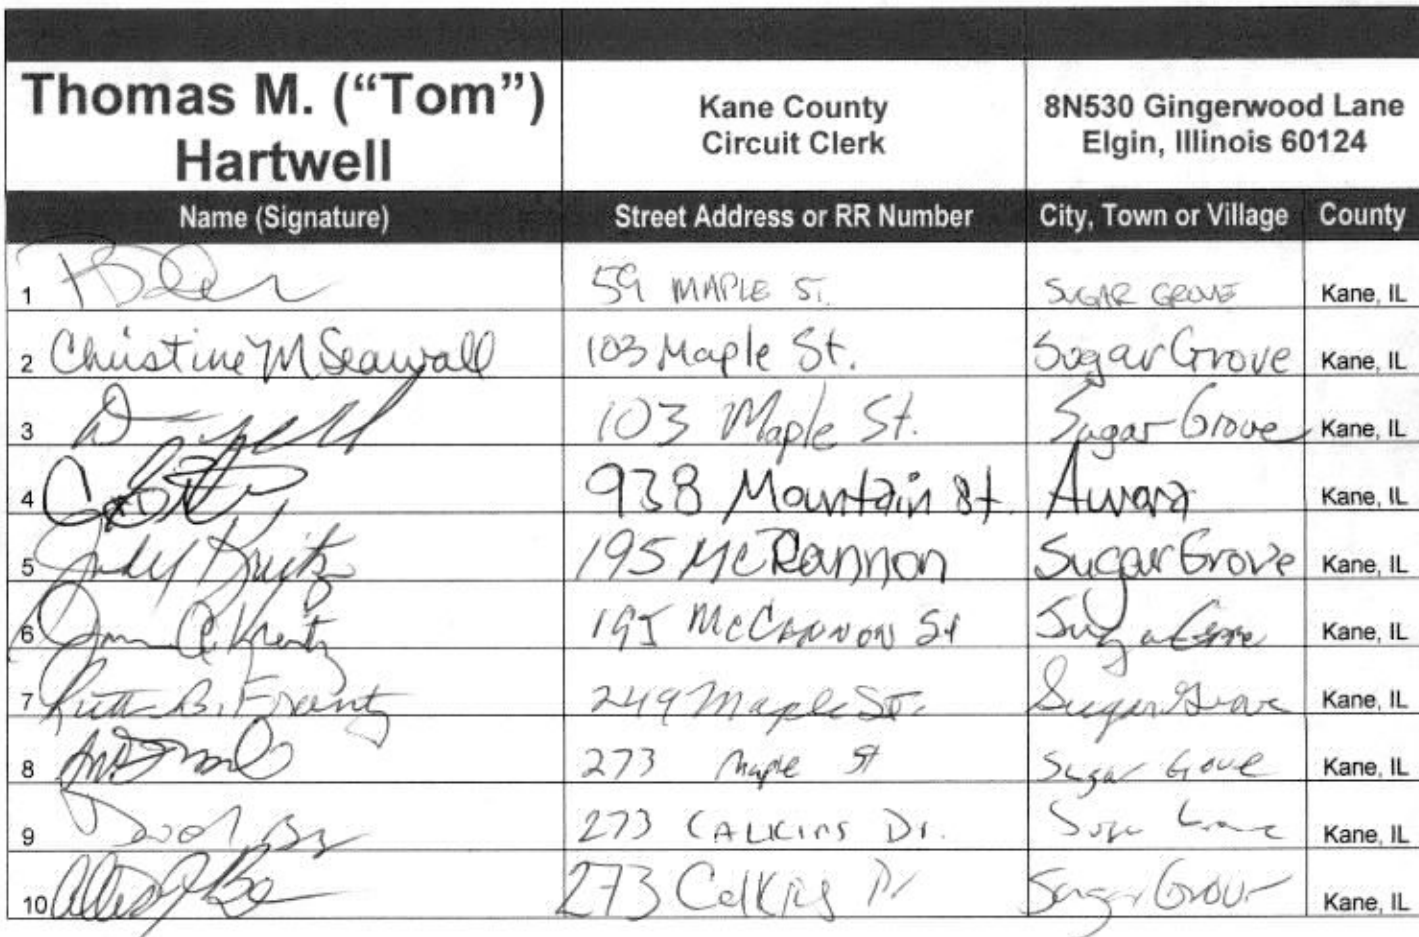 Thomas M. ("Tom") Hartwell
Kane County Circuit Clerk
8N530 Gingerwood Lane
Elgin, Illinois 60124
Name (Signature) Street Address or RR Number City, Town or Village County
1 59 MAPLE ST. SUGAR GROVE Kane, IL
2 Christine M Seawall 103 Maple St. Sugar Grove Kane, IL
3 103 Maple St. Sugar Grove Kane, IL
4 938 Mountain St. Aurora Kane, IL
5 Judy 195 McCannon Sugar Grove Kane, IL
6 195 McCannon St Sugar Grove Kane, IL
7 Ruth B. Frantz 249 Maple St. Sugar Grove Kane, IL
8 273 Maple St Sugar Grove Kane, IL
9 273 CALKINS Dr. Kane, IL
10 273 Calkins Dr Sugar Grove Kane, IL